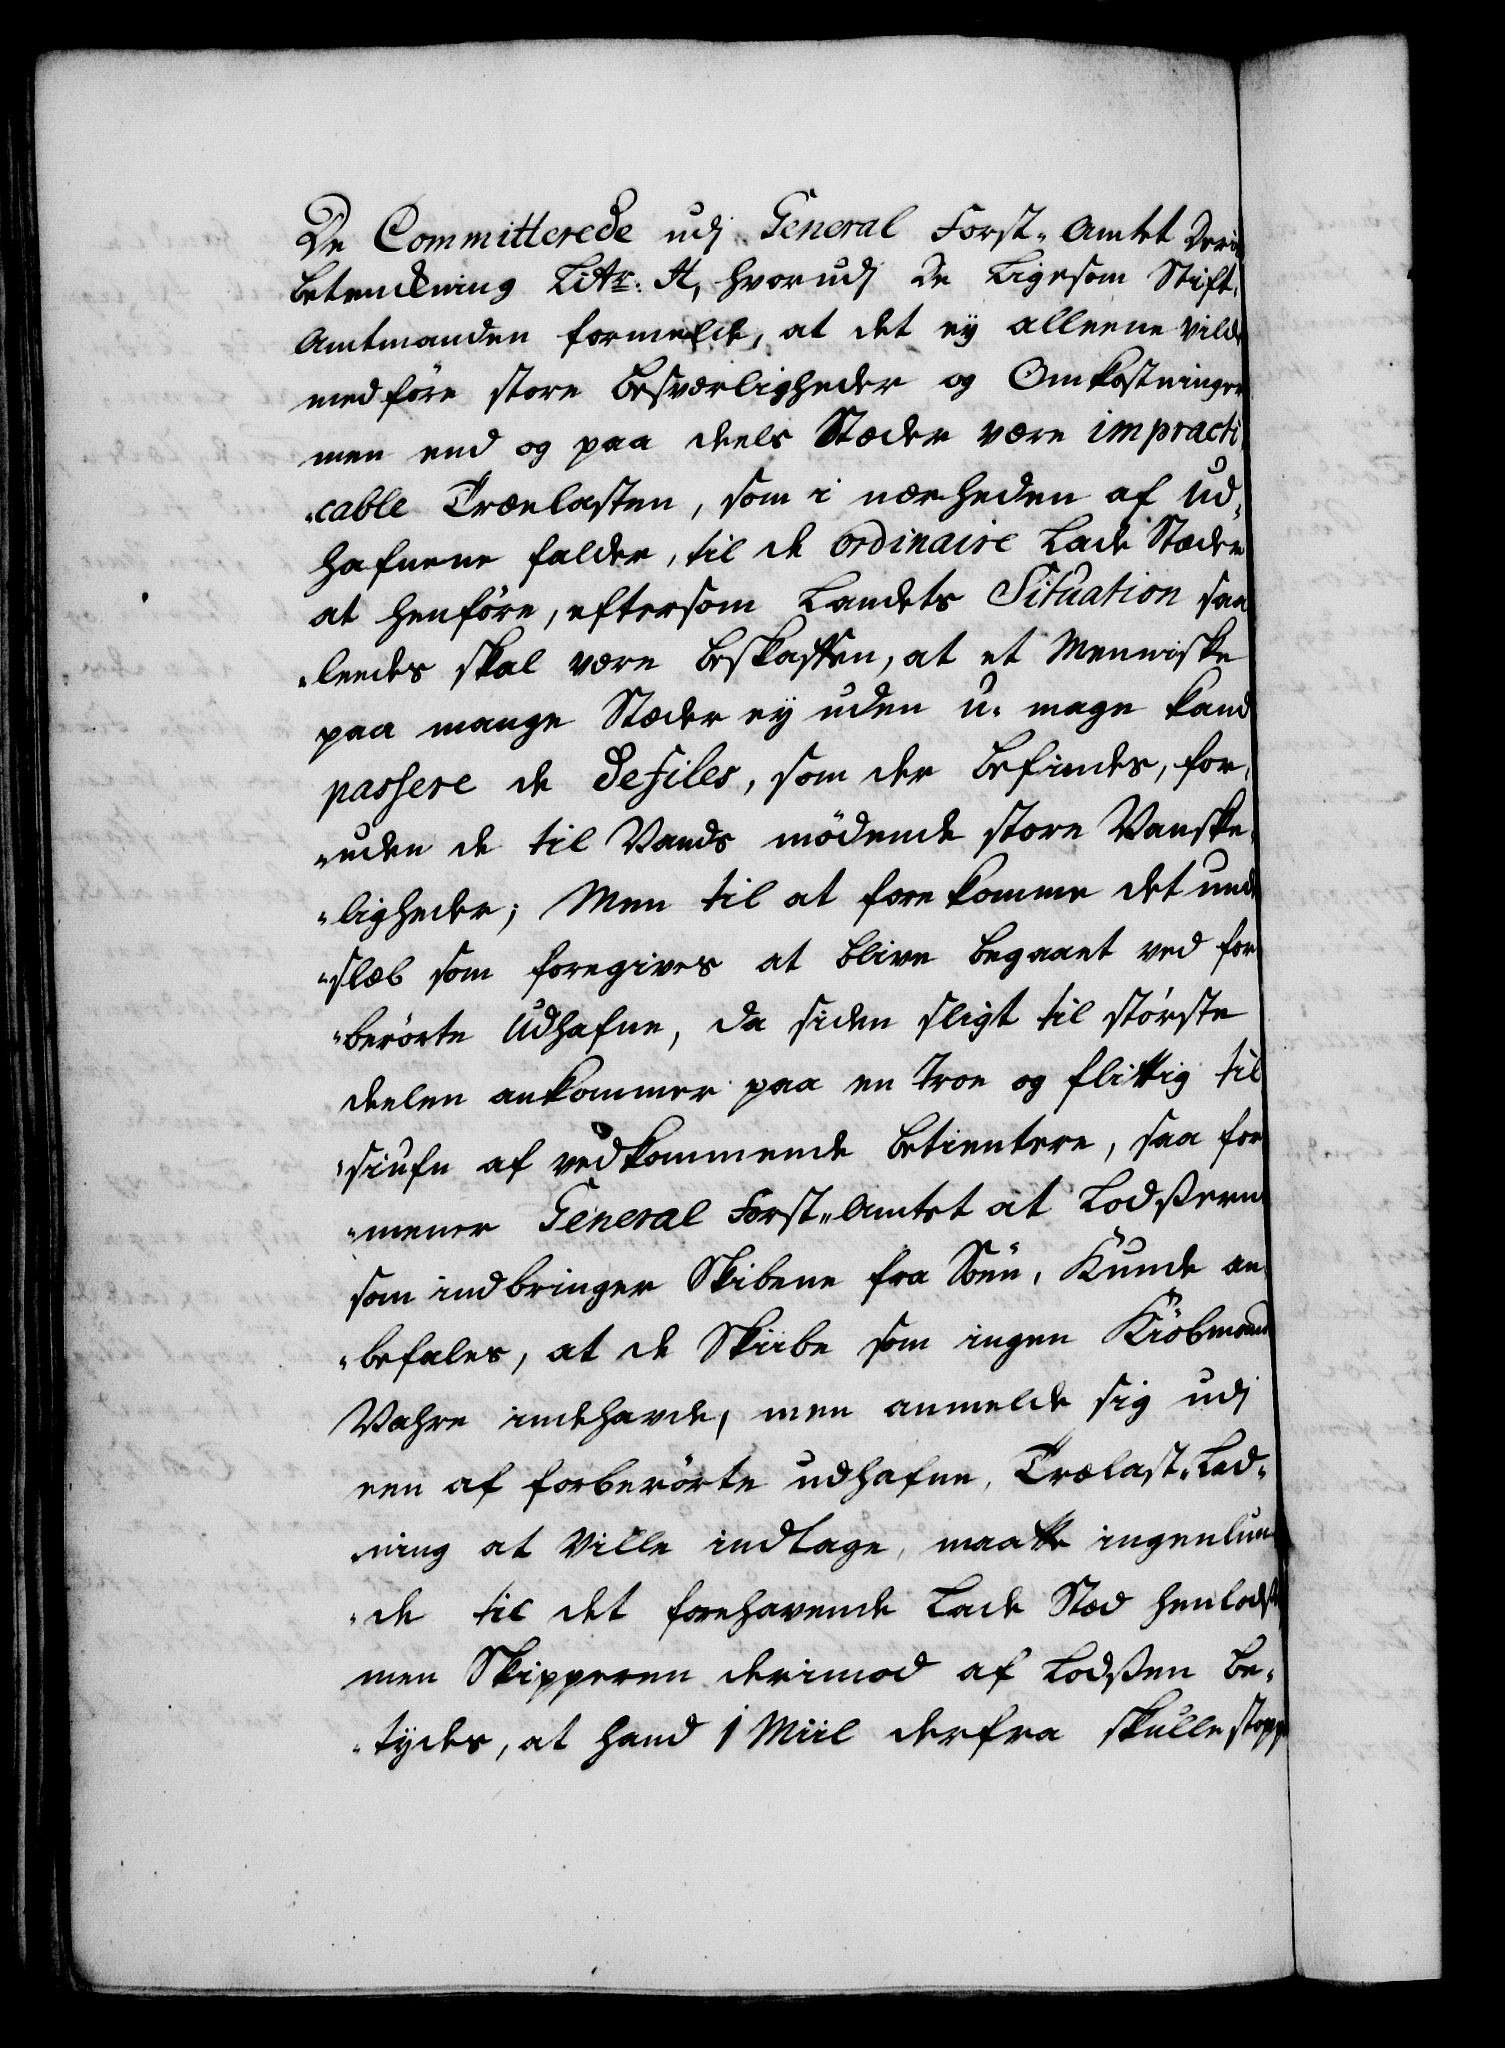 De Committerede udj General Forst-Amtet Deris
betenckning Litr: A, hvorudj De Ligesom Stift-
Amtmanden formelde, at det ey alleene vilde
medföre store besværligheder og Omkostninger
men end og paa deels Stæder være impracti
-cable Trælasten, som i nærheden af Ud-
hafnene falder, til de ordinaire Lade Stæder
at henföre, eftersom Landets Situation saa
-leedes skal være beskaffen, at et Menniske
paa mange Stæder ey uden u-mage kand
passere de defiles, som der befindes, for-
-uden de til Vands mödende store Vanske-
-ligheder; Men til at forekomme det und
-slæb som foregives at blive begaaet ved for
-berörte Udhafne, da siden sligt til störste
deelen ankommer paa en troe og flittig til
-siufn af vedkommende betientere, saa for
-mener General Forst-Amtet at Lodserne
som indbringer Skibene fra Söen, Kunde an-
-befales, at de Skiibe som ingen Kiöbmand
Vahre indehavde, men anmelde sig udj
een af forberörte udhafne, Trælast-Lad-
-ning at ville indtage, maatte ingenlun
-de til det forehavende Lade Stæd henlodse
men Skipperen derimod af Lodsen be-
-tydes, at hand 1 Miil derfra skulle stoppe